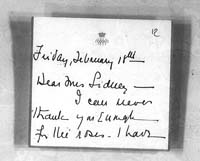 12
Friday, February 18th
Dear Mrs Sidney —
I can never
thank you enough
for the roses. I have